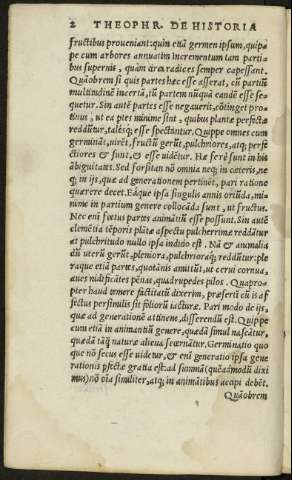 2 THEOPHR. DE HISTORIA
fructibus proueniant: quin etiã germen ipsum, quip-
pe cum arbores annuatim incrementum tam partia
bus supernis, quàm circa radices semper capessant.
Quãobrem si quis partes hæc esse asserat, cũ partiũ
multitudinẽ incertã, tũ partem nũquã eandẽ esse se-
quetur. Sin autẽ partes esse negauerit, cõtinget pro-
tinus, ut ea ptes minime sint, quibus plantæ perfectæ
reddũtur, talesq; esse spectantur. Quippe omnes cum
germinãt, uirẽt, fructũ gerũt, pulchriores, atq; perfe-
ctiores & sunt, & esse uidẽtur. Hæ ferè sunt in his
ãbiguitates. Sed forsitan nõ omnia neq; in cæteris, ne
q; in ijs, quæ ad generationem pertinẽt, pari ratione
quærere decet. Eaque ipsa singulis annis oriũda, mi-
nime in partium genere collocãda sunt, ut fructus.
Nec enĩ fœtus partes animãtiũ esse possunt. Sin autẽ
clemẽtia tẽporis plãtæ aspectu pulcherrimæ reddãtur
at pulchritudo nullo ipsa indicio est. Nã & anumalia
dũ uterũ gerũt, pleniora, pulchrioraq; reddũtur: ple
raque etiã partes, quotãnis amittũt, ut cerui cornua,
aues nidificãtes pẽnas, quadrupedes pilos. Quapro-
pter haud temere factitatũ dixerim, præsertĩ cũ is af
fectus persimilis sit foliorũ iacturæ. Pari modo de ijs,
quæ ad generationẽ attinent, disserendũ est. Quippe
cum etiã in animantiũ genere, quædã simul nascãtur,
quædã tãq̃ naturæ aliena secernãtur. Germinatio quo
que nõ secus esse uidetur, & enĩ generatio ipsa gene
rationis pfectæ gratia est: ad summã (quẽadmodũ dixi
mus) nõ oĩa similiter, atq; in animãtibus accipi debẽt.
Quãobrem